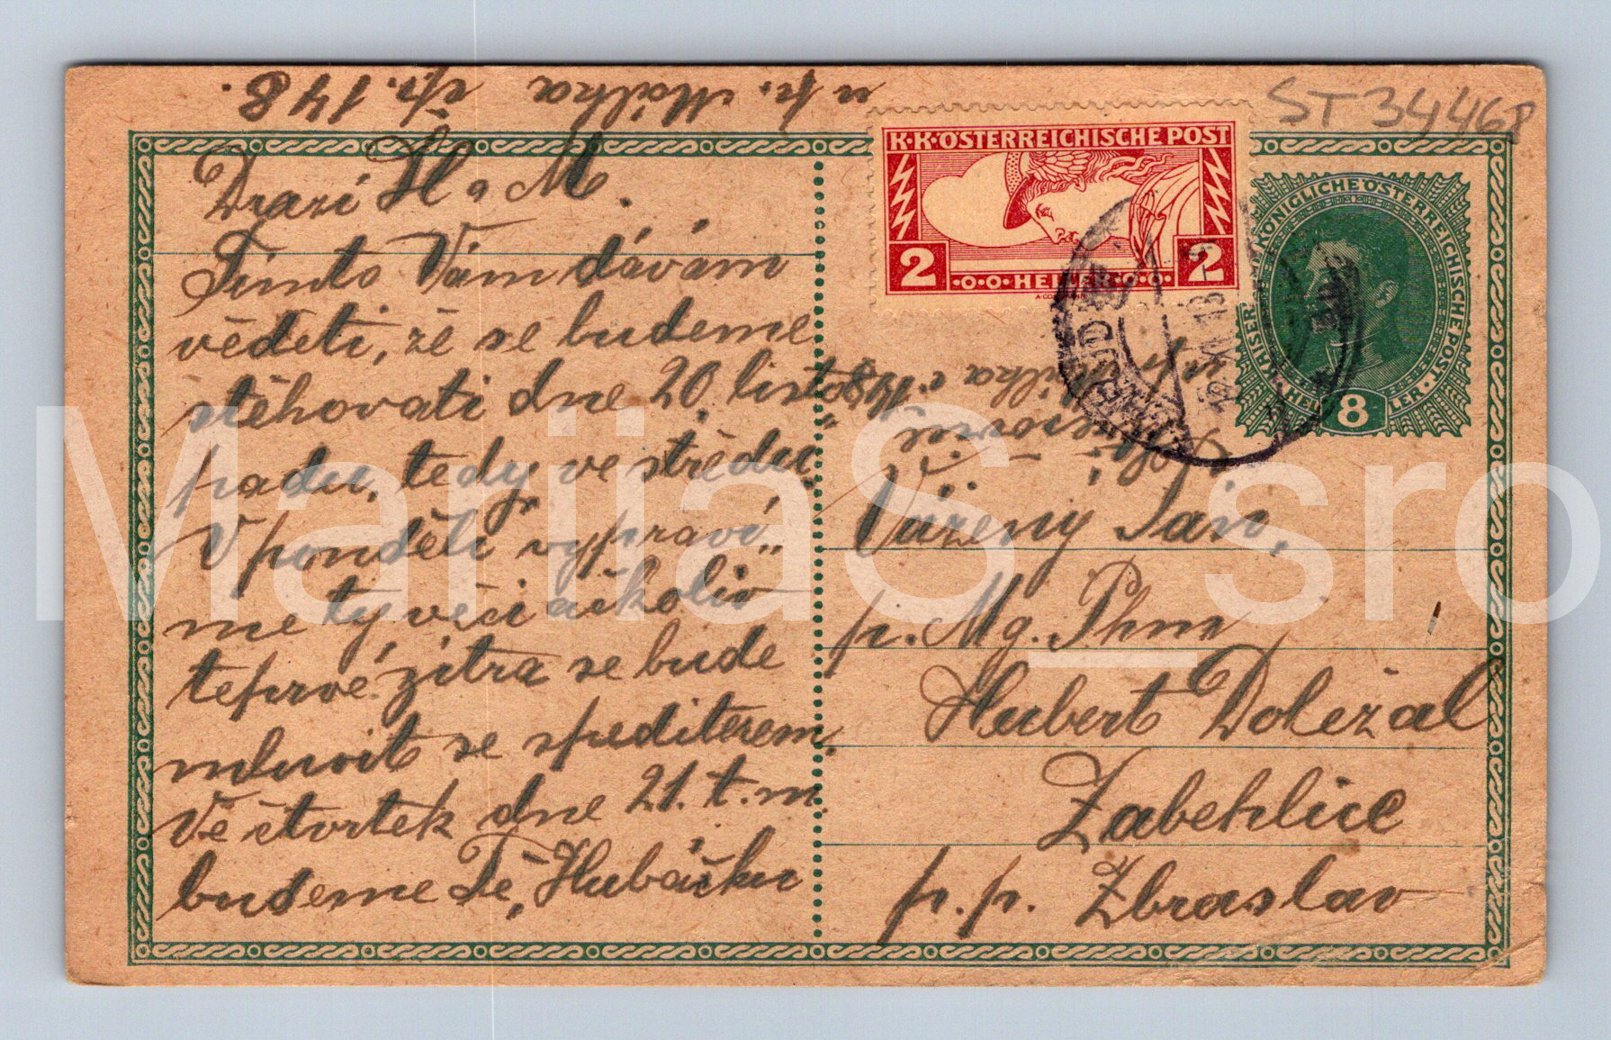 u p. Malka čp. 148.
ST 34468
Drazí H a M.
Tímto Vám dávám
věděti, že se budeme
stěhovati dne 20. listo„
padu, tedy ve středu.
V pondělí vypraví„
me ty věci ačkoliv
teprvé zítra se bude
mluvit se speditérem.
Ve čtvrtek dne 21. t. m.
budeme Tě, Hubáčku
K·K·ÖSTERREICHISCHE POST
2 ·O·O·HELLER·O·O· 2
KAISERL KÖNIGLICHE ÖSTERREICHISCHE POST
8 HELLER
148
Vážený Pán,
p. Mg. Phm
Hubert Doležal
Zabehlice
p. p. Zbraslav
MarijaS_sro